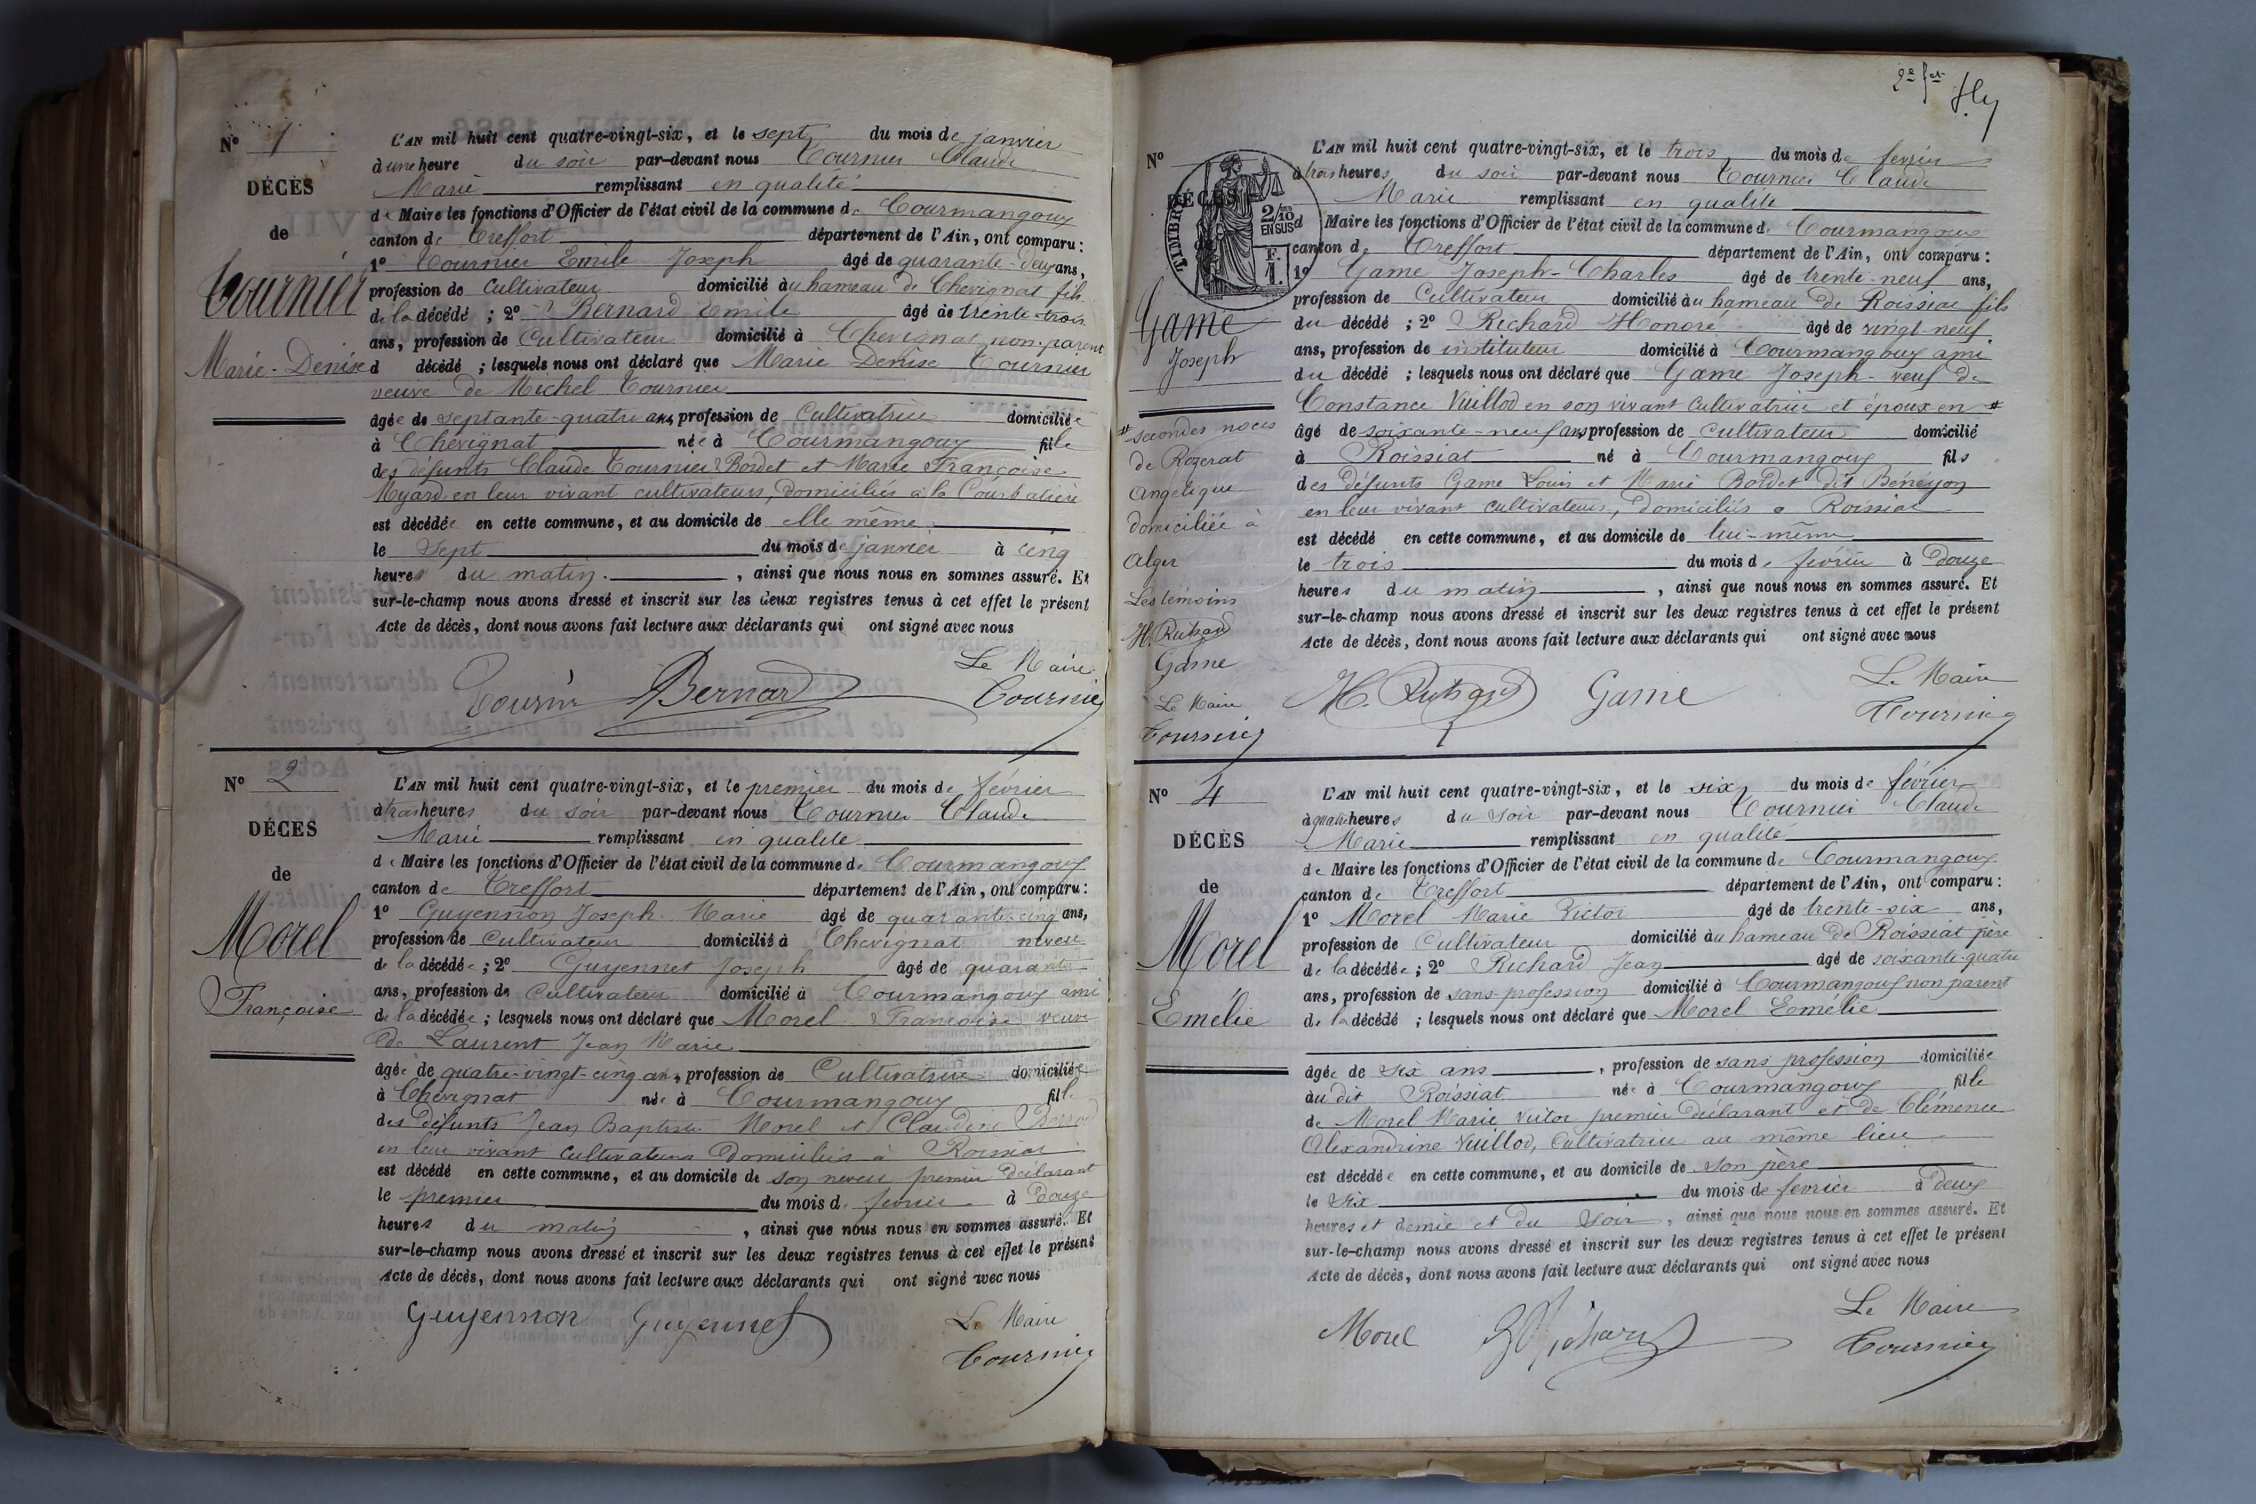 N° 1
DÉCÈS
de
Tournier
Marie-Denise
L'AN mil huit cent quatre-vingt-six, et le sept du mois de janvier
à une heure du soir par-devant nous Tournier Claude
Marie remplissant en qualité
de Maire les fonctions d'Officier de l'état civil de la commune de Courmangoux
canton de Treffort département de l'Ain, ont comparu :
1° Tournier Emile Joseph âgé de quarante-deux ans,
profession de Cultivateur domicilié au hameau de Chevignat fils
de la décédé ; 2° Bernard Emile âgé de trente-trois
ans, profession de Cultivateur domicilié à Chevignat non-parent
d décédé ; lesquels nous ont déclaré que Marie Denise Tournier
veuve de Michel Tournier
âgée de septante-quatre ans, profession de Cultivatrice domiciliée
à Chevignat née à Courmangoux fille
des défunts Claude Tournier Bordet et Marie Françoise
Myard en leur vivant cultivateurs, domiciliés à la Courbatière
est décédée en cette commune, et au domicile de elle même
le sept du mois de janvier à cinq
heures du matin, ainsi que nous nous en sommes assuré. Et
sur-le-champ nous avons dressé et inscrit sur les deux registres tenus à cet effet le présent
Acte de décès, dont nous avons fait lecture aux déclarants qui ont signé avec nous
Le Maire
Bernard Tournier
N° 2
DÉCÈS
de
Morel
Françoise
L'AN mil huit cent quatre-vingt-six, et le premier du mois de février
à trois heures du soir par-devant nous Tournier Claude
Marie remplissant en qualité
de Maire les fonctions d'Officier de l'état civil de la commune de Courmangoux
canton de Treffort département de l'Ain, ont comparu :
1° Guyennon Joseph Marie âgé de quarante-cinq ans,
profession de Cultivateur domicilié à Chevignat neveu
de la décédée ; 2° Guyennet Joseph âgé de quarante
ans, profession de Cultivateur domicilié à Courmangoux ami
de la décédée ; lesquels nous ont déclaré que Morel Françoise veuve
de Laurent Jean Marie
âgée de quatre-vingt-cinq ans, profession de Cultivatrice domiciliée
à Chevignat née à Courmangoux fille
des défunts Jean Baptiste Morel et Claudine
en leur vivant cultivateurs domiciliés à Roissiat
est décédé en cette commune, et au domicile de son neveu premier déclarant
le premier du mois de février à douze
heures du matin, ainsi que nous nous en sommes assuré. Et
sur-le-champ nous avons dressé et inscrit sur les deux registres tenus à cet effet le présent
Acte de décès, dont nous avons fait lecture aux déclarants qui ont signé avec nous
Guyennon Guyennet Le Maire
Tournier
N°
DÉCÈS
TIMBRE
2/10 EN SUS
F. 1.
Game
Joseph
L'AN mil huit cent quatre-vingt-six, et le trois du mois de février
à trois heures du soir par-devant nous Tournier Claude
Marie remplissant en qualité
d Maire les fonctions d'Officier de l'état civil de la commune de Courmangoux
canton de Treffort département de l'Ain, ont comparu :
1° Game Joseph-Charles âgé de trente-neuf ans,
profession de Cultivateur domicilié au hameau de Roissiat fils
du décédé ; 2° Richard Honoré âgé de vingt-neuf
ans, profession de instituteur domicilié à Courmangoux ami
du décédé ; lesquels nous ont déclaré que Game Joseph-veuf de
Constance Vuillod en son vivant cultivatrice et époux en *
âgé de soixante-neuf ans profession de cultivateur domicilié
à Roissiat né à Courmangoux fils
des défunts Game Louis et Marie Bordet dit Bénéyon
en leur vivant cultivateurs, domiciliés à Roissiat
est décédé en cette commune, et au domicile de lui-même
le trois du mois de février à douze
heures du matin, ainsi que nous nous en sommes assuré. Et
sur-le-champ nous avons dressé et inscrit sur les deux registres tenus à cet effet le présent
Acte de décès, dont nous avons fait lecture aux déclarants qui ont signé avec nous
* secondes noces
de Rozerat
Angélique
domiciliée à
Alger
Les témoins
H. Richard
Game
Le Maire
Tournier
H. Richard Game Le Maire
Tournier
N° 4
DÉCÈS
de
Morel
Emélie
L'AN mil huit cent quatre-vingt-six, et le six du mois de février
à quatre heures du soir par-devant nous Tournier Claude
Marie remplissant en qualité
de Maire les fonctions d'Officier de l'état civil de la commune de Courmangoux
canton de Treffort département de l'Ain, ont comparu :
1° Morel Marie Victor âgé de trente-six ans,
profession de Cultivateur domicilié au hameau de Roissiat père
de la décédée ; 2° Richard Jean âgé de soixante-quatre
ans, profession de sans profession domicilié à Courmangoux non parent
de la décédé ; lesquels nous ont déclaré que Morel Emélie
âgée de six ans, profession de sans profession domiciliée
au dit Roissiat née à Courmangoux fille
de Morel Marie Victor premier déclarant et de Clémence
Alexandrine Vuillod, Cultivatrice au même lieu
est décédée en cette commune, et au domicile de son père
le six du mois de février à deux
heures et demie et du soir, ainsi que nous nous en sommes assuré. Et
sur-le-champ nous avons dressé et inscrit sur les deux registres tenus à cet effet le présent
Acte de décès, dont nous avons fait lecture aux déclarants qui ont signé avec nous
Morel Richard Le Maire
Tournier